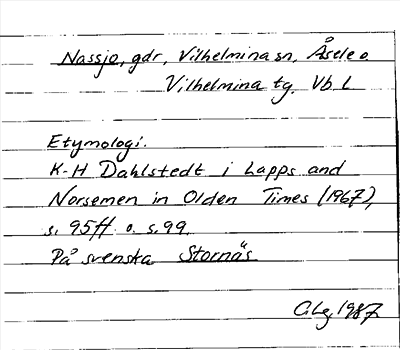 Nassjo, gdr, Vilhelmina sn, Åsele o.
Vilhelmina tg. Vb. L
Etymologi.
K-H Dahlstedt i Lapps and
Norsemen in Olden Times (1967),
s. 95ff o. s. 99.
På svenska Stornäs
1987